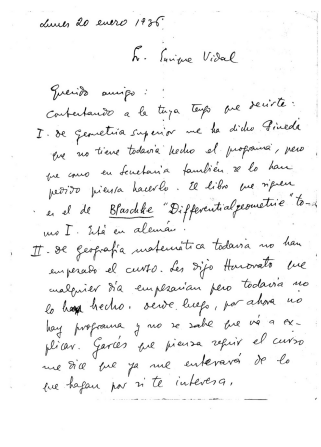 Lunes 20 enero 1936
Sr. Enrique Vidal
Querido amigo:
Contestando a la tuya tengo que decirte:
I- De Geometria Superior me ha dicho Pineda
que no tiene todavia hecho el programa, pero
que como en Secretaria también se lo han
pedido piensa hacerlo. El libro que siguen
es el de Blaschke "Differentialgeometrie" to-
mo I. Está en alemán.
II- De Geografia matemática todavia no han
empezado el curso. Les dijo Honorato que
cualquier dia empezarian pero todavia no
lo han hecho. Desde luego, por ahora no
hay programa y no se sabe que vá a ex-
plicar. Garcés que piensa seguir el curso
me dice que ya me enterará de lo
que hagan por si te interesa.